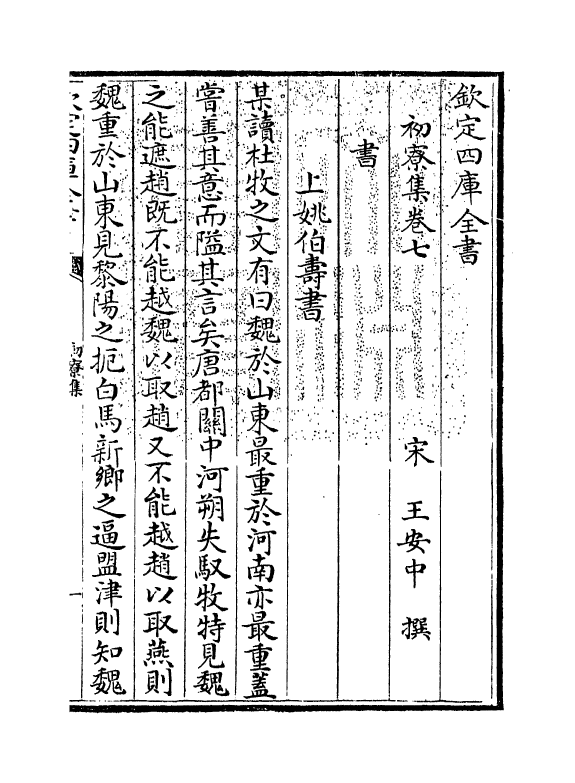 欽定四庫全書
初寮集卷七
宋 王安中 撰
書
上姚伯壽書
某讀杜牧之文有曰魏於山東最重於河南亦最重蓋
嘗善其意而隘其言矣唐都關中河朔失馭牧特見魏
之能遮趙既不能越魏以取趙又不能越趙以取燕則
魏重於山東見黎陽之扼白馬新鄉之逼盟津則知魏
初寮集
一